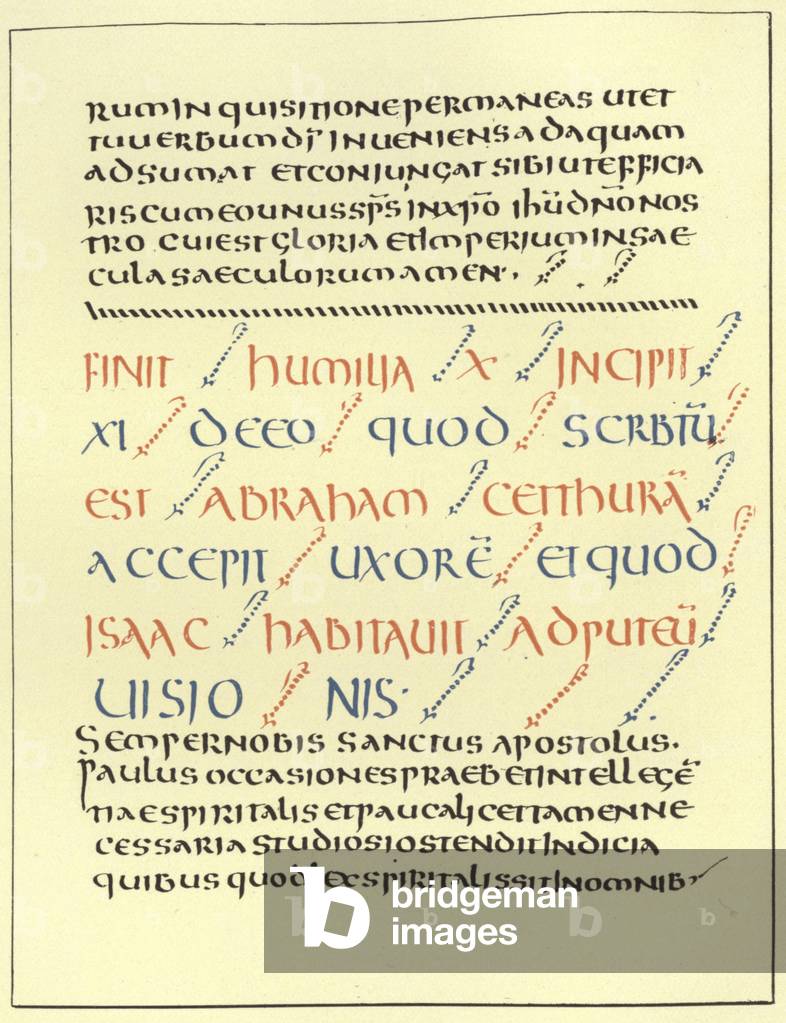 rum inquisitione permaneas utet
tuuerbum dī inueniens adaquam
adsumat et conjungat sibi utefficia
ris cum eo unus sp̄s in xp̄o ihū dn̄o nos
tro cui est gloria et imperium insae
cula saeculorum amen.,
FINIT humilia X INCIPIT
XI DEEO QUOD SCRBTŪ
EST ABRAhAM CETThURĀ
ACCEPIT UXORĒ ET QUOD
ISAAC hABITAUIT AD PUTEŪ
UISIO NIS.
Semper nobis sanctus apostolus.
Paulus occasiones praebet intellegē
tiae spiritalis et pauca licet tamen ne
cessaria studiosi ostendit indicia
quibus quod lex spiritalis sit in omnib,
bridgeman
images